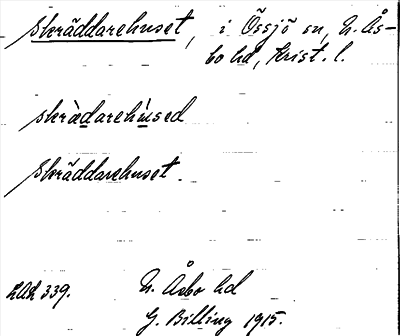 Skräddarehuset, i Össjö sn, N. Ås-
bo hd, Krist. l.
skrädarehúsed
Skräddarehuset.
LAL 339. N. Åsbo hd
G. Billing 1915.